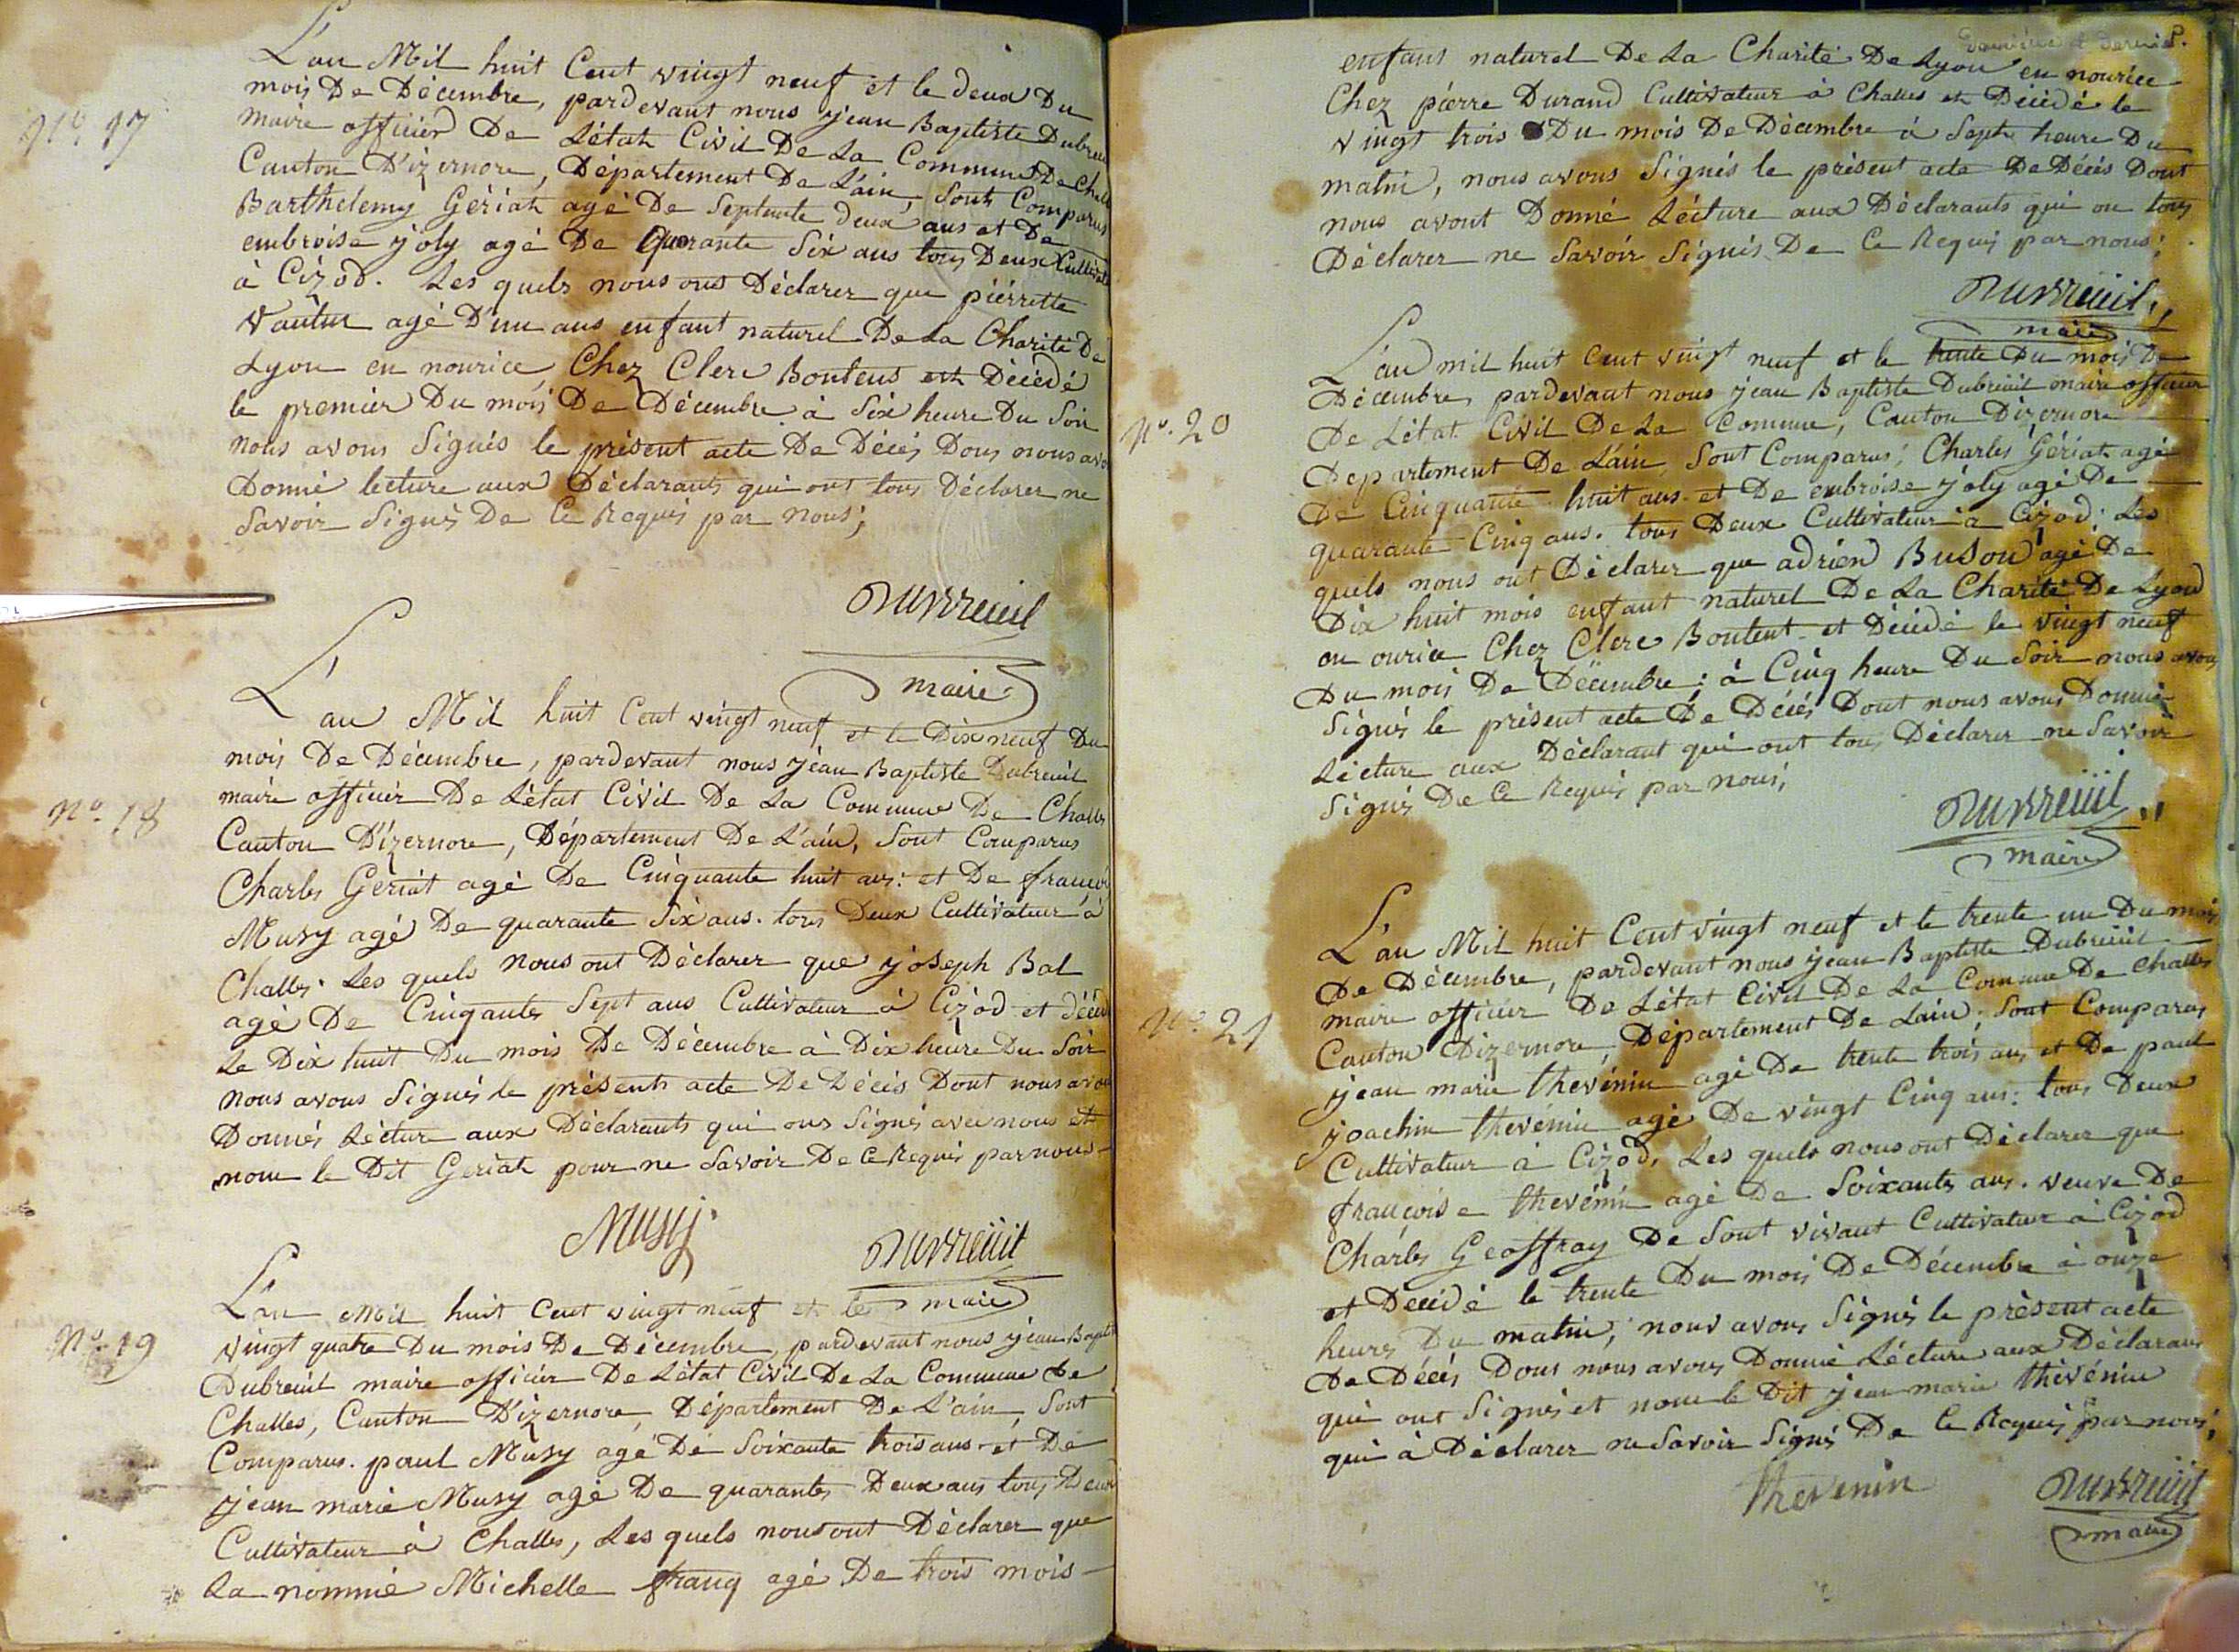 N° 17
L'an Mil huit Cent vingt neuf et le deux Du
mois De Décembre, pardevant nous jean Baptiste Dubreuil
maire officier De L'état Civil De La Commune De Challes
Canton D'izernore, Département De L'ain, Sont Comparus
Barthélemy Gériat agé De Septente deux ans et De
embroise joly agé De Quarante Six ans tous Deux Cultivateur
à Cizod. Les quels nous ons Déclarer que piérrette
Vautur agé D'un ans enfant naturel De La Charité De
Lyon en nourice Chez Clerc Bontens est Décédé
le premier Du mois De Décembre à Six heure Du Soir
nous avons Signés le présent acte De Décés Dons nous avons
Donné lecture aux Déclarants qui ont tous Déclarer ne
Savoir Signés De Ce Requis par nous;
Dubreuil
maire
N° 18
L'an Mil huit Cent vingt neuf et le Dix neuf Du
mois De Décembre, pardevant nous jean Baptiste Dubreuil
maire officier De L'état Civil De La Commune De Challes
Canton D'izernore, Département De L'ain, Sont Comparus
Charles Geriat agé De Cinquante huit ans: et De francois
Musy agé De quarante Six ans. tous Deux Cultivateur à
Challes. Les quels nous ont Déclarer que joseph Bal
agé De Cinqantes Sept ans Cultivateur à Cizod et décédé
Le Dix huit Du mois De Décembre à Dix heure Du Soir
nous avons Signés le présents acte De Décés Dont nous avons
Donnés Lécture aux Déclarants qui ons Signés avec nous et
nom le Dit Geriat pour ne Savoir De Ce Requis par nous
Musy Dubreuil
maire
N° 19
L'an Mil huit Cent vingt neuf et le
vingt quatre Du mois De Décembre, pardevant nous jean Baptiste
Dubreuil maire officier De L'état Civil De La Commune De
Challes, Canton D'izernore, Département De L'ain, Sont
Comparus. paul Musy agé De Soixante trois ans et De
jean marie Musy agé De quarantes Deux ans tous Deux
Cultivateur à Challes, Les quels nous ont Déclarer que
La nommé Michelle franq agé De trois mois
enfans naturel De La Charité De Lyon en nourice
Chez piérre Durand Cultivateur à Challes et Décédé le
vingt trois Du mois De Décembre à Sept heure Du
matin, nous avons Signés le présent acte De Décés Dont
nous avont Donné Lécture aux Déclarants qui on tous
Déclarer ne Savoir Signés De Ce Requis par nous;
Dubreuil
maire
N° 20
L'an mil huit Cent vingt neuf et le trente Du mois De
Décembre, pardevant nous jean Baptiste Dubreuil maire officier
De L'état Civil De La Commune, Canton Dizernore
Département De L'ain, Sont Comparus; Charles Gériat agé
De Cinquante huit ans et De embroise joly agé De
quarante Cinq ans. tous Deux Cultivateur à Cizod; Les
quels nous ont Déclarer que adrien Buson agé De
Dix huit mois enfant naturel De La Charité De Lyon
en ourice Chez Clerc Bontent et Décédé le vingt neuf
Du mois De Décembre; à Cinq heure Du Soir nous avons
Signés le présent acte De Décés Dont nous avons Donné
Lécture aux Déclarant qui ont tous Déclarer ne Savoir
Signés De Ce Requis par nous;
Dubreuil
maire
N° 21
L'an Mil huit Cent vingt neuf et le trente un Du mois
De Décembre, pardevant nous jean Baptiste Dubreuil
maire officier De L'état Civil De La Commune De Challes
Canton Dizernore, Département De Lain; Sont Comparus
jean marie thevénin agé De trente trois ans et De paul
joachim thevénin agé De vingt Cinq ans: tous Deux
Cultivateur à Cizod, Les quels nous ont Déclarer que
francoise thevénin agé De Soixantes ans. veuve De
Charles Geoffray De Sont vivant Cultivateur à Cizod
et Décédé le trente Du mois De Décembre à onze
heures Du matin; nous avons Signés le présent acte
De Décés Dons nous avons Donné Lécture aux Déclarans
qui ont Signés et nom le Dit jean marie thévénin
qui à Déclarer ne Savoir Signés De Ce Requis par nous;
thevenin Dubreuil
maire